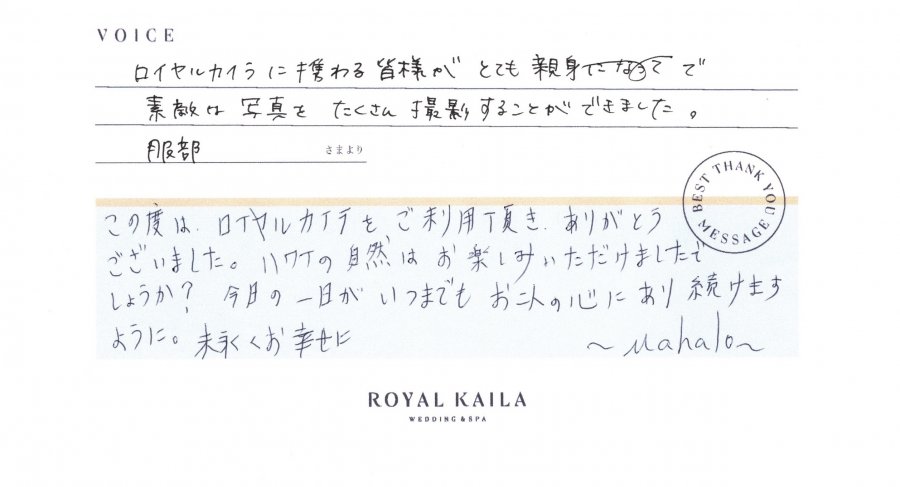 VOICE
ロイヤルカイラに携わる皆様がとても親身で
素敵な写真をたくさん撮影することができました。
服部 さまより
BEST THANK YOU MESSAGE
この度は、ロイヤルカイラを、ご利用頂き、ありがとう
ございました。ハワイの自然はお楽しみいただけましたで
しょうか? 今日の一日がいつまでもお二人の心にあり続けます
ように。末永くお幸せに ～Mahalo～
ROYAL KAILA
WEDDING & SPA